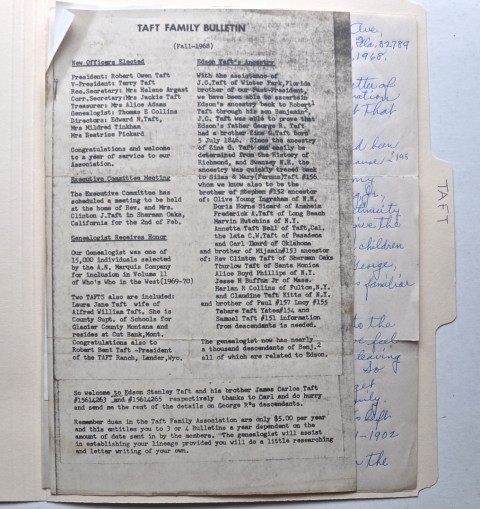 TAFT FAMILY BULLETIN
(Fall-1968)
New Officers Elected
President: Robert Owen Taft
V-President: Terry Taft
Rec.Secretary: Mrs Helene Argast
Corr.Secretary: Mrs Jackie Taft
Treasurer: Mrs Alice Adams
Genealogist: Thomas E Collins
Directors: Edward H.Taft,
Mrs Mildred Tinkham
Mrs Beatrice Pickard
Congratulations and welcome
to a year of service to our
Association.
Executive Committee Meeting
The Executive Committee has
scheduled a meeting to be held
at the home of Rev. and Mrs.
Clinton J.Taft in Sherman Oaks,
California for the 2nd of Feb.
Genealogist Receives Honor
Our Genealogist was one of
15,000 individuals selected
by the A.N. Marquis Company
for inclusion in Volume 11
of Who's Who in the West(1969-70)
Two TAFTS also are included:
Laura Jane Taft wife of
Alfred William Taft, She is
County Supt. of Schools for
Glacier County Montana and
resides at Cut Bank,Mont.
Congratulations also to
Robert Bent Taft -President
of the TAFT Ranch, Lander,Wyo.
Edson Taft's Ancestry
With the assistance of
J.G.Taft of Winter Park,Florida
brother of our Past-President,
we have been able to ascertain
Edson's ancestry back to Robert1
Taft through his son Benjamin2.
J.G. Taft was able to prove that
Edson's father George R. Taft
had a brother Zinn G.Taft born
5 July 1846. Since the ancestry
of Zinn G. Taft was easily be
determined from the History of
Richmond, and Swanzey N.H. the
ancestry was quickly traced back
to Silas & Mary(Farnum)Taft #156
whom we know also to be the
brother of Stephen #152 ancestor
of: Olive Young Ingraham of N.H.
Doris Horne Sicard of Anaheim
Frederick A.Taft of Long Beach
Mervin Hutchins of N.Y.
Annetta Taft Bell of Taft,Cal.
the late C.W.Taft of Pasadena
and Carl Ekard of Oklahoma
and brother of Mijamin#153 ancestor
of: Rev Clinton Taft of Sherman Oaks
Thurlow Taft of Santa Monica
Alice Boyd Phillips of N.Y.
Jesse H Buffum Jr of Mass.
Harlan H Collins of Fulton,N.Y.
and Claudine Taft Kitts of N.Y.
and brother of Paul #157 Lucy #155
Yabare Taft Yates#154 and
Samuel Taft #151 information
from descendants is needed.
The genealogist now has nearly
a thousand descendants of Benj.2
all of which are related to Edson.
So welcome to Edson Stanley Taft and his brother James Carlos Taft
#15614263 and #15614265 respectively thanks to Carl and do hurry
and send me the rest of the details on George R's descendants.
Remember dues in the Taft Family Association are only $5.00 per year
and this entitles you to 3 or 4 Bulletins a year dependent on the
amount of data sent in by the members. The genealogist will assist
in establishing your lineage provided you will do a little researching
and letter writing of your own.
Ave,
Fla. 32789
1968.
that
my
children
George
familiar
to the
feel
leaving
So
get
1-1902
the
TAFT